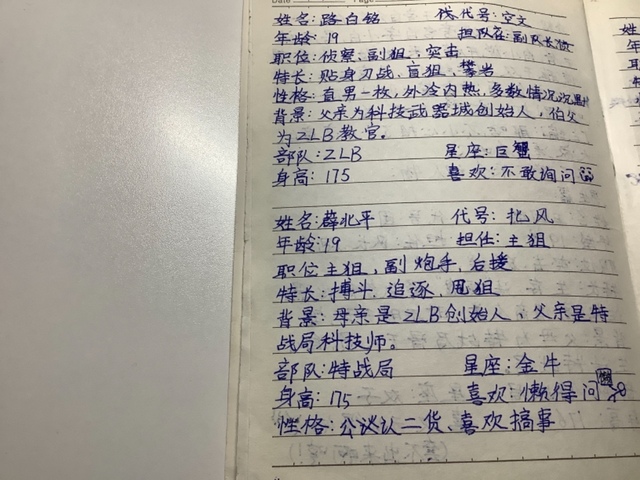 Date Page
姓名:路白铭 代号:空文
年龄:19 担队任:副队长
职位:侦察、副狙、突击
特长:贴身刃战、盲狙、攀岩
性格:直男一枚,外冷内热,多数情况沉默
背景:父亲为科技武器城创始人,伯父
为ZLB教官。
部队:ZLB 星座:巨蟹
身高:175 喜欢:不敢询问
姓名:薛北平 代号:
风
年龄:19 担任:主狙
职位主狙,副炮手,后援
特长:搏斗、追逐、甩狙
背景:母亲是ZLB创始人、父亲是特
战局科技师。
部队:特战局 星座:金牛
身高:175 喜欢:懒得问
性格:公认二货、喜欢搞事